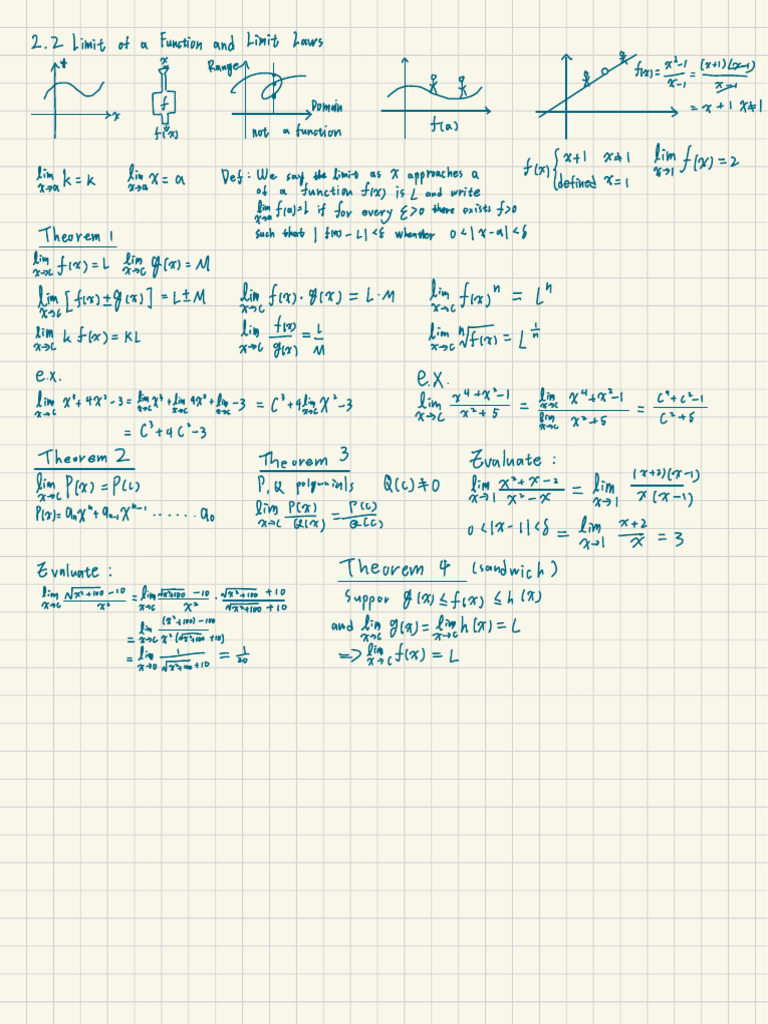 2.2 Limit of a Function and Limit Laws
y
x
x
f
f(x)
Range
Domain
not a function
f(a)
f(x) = x²-1 / x-1 = (x+1)(x-1) / x-1
= x+1 x≠1
f(x) { x+1 x≠1
defined x=1
lim x→1 f(x) = 2
lim x→a k = k
lim x→a x = a
Def: We say the limit as x approaches a
of a function f(x) is L and write
lim x→a f(a)=L if for every ε>0 there exists f>0
such that | f(x) - L| < ε whenther 0<|x-a|<δ
Theorem 1
lim x→c f(x) = L lim x→c g(x) = M
lim x→c [f(x) ± g(x)] = L ± M
lim x→c f(x) · g(x) = L · M
lim x→c f(x)ⁿ = Lⁿ
lim x→c k f(x) = KL
lim x→c f(x)/g(x) = L/M
lim x→c ⁿ√f(x) = L^(1/n)
e.x.
lim x→c x³+4x²-3 = lim x→c x³ + lim x→c 4x² + lim x→c -3 = C³+4 lim x→c x²-3
= C³+4C²-3
e.x.
lim x→c x⁴+x²-1 / x²+5 = lim x→c x⁴+x²-1 / lim x→c x²+5 = C⁴+C²-1 / C²+5
Theorem 2
lim x→c P(x) = P(c)
P(x) = aₙxⁿ + aₙ₋₁xⁿ⁻¹ ...... a₀
Theorem 3
P, Q polynmials Q(c) ≠ 0
lim x→c P(x)/Q(x) = P(c)/Q(c)
Evaluate :
lim x→1 x²+x-2 / x²-x = lim x→1 (x+2)(x-1) / x(x-1)
0<|x-1|<δ = lim x→1 x+2 / x = 3
Evaluate :
lim x→c √x²+100 -10 / x² = lim x→c √x²+100 -10 / x² · √x²+100 +10 / √x²+100 +10
= lim x→c (x²+100)-100 / x²(√x²+100 +10)
= lim x→0 1 / √x²+100 +10 = 1/20
Theorem 4 (sandwich)
Suppor g(x) ≤ f(x) ≤ h(x)
and lim x→c g(x) = lim x→c h(x) = L
=> lim x→c f(x) = L